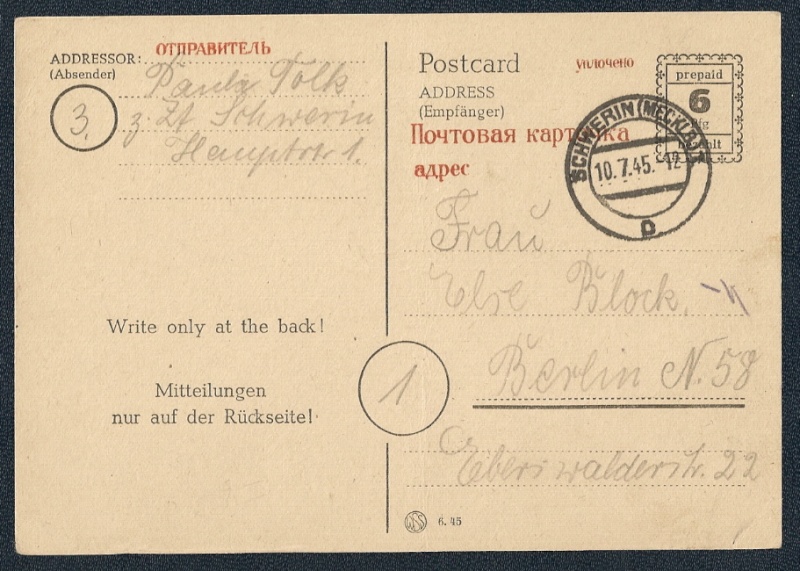 ADDRESSOR:
(Absender)
ОТПРАВИТЕЛЬ
Paula Tolk
z. Zt Schwerin
Hauptstr 1.
3.
Write only at the back!
Mitteilungen
nur auf der Rückseite!
Postcard
уплочено
ADDRESS
(Empfänger)
Почтовая карточка
адрес
prepaid
6
Pfg
bezahlt
SCHWERIN (MECKLB)1
10.7.45.-12
D
Frau
Else Block,
Berlin N. 58
1
Eberswalderstr. 22
6. 45